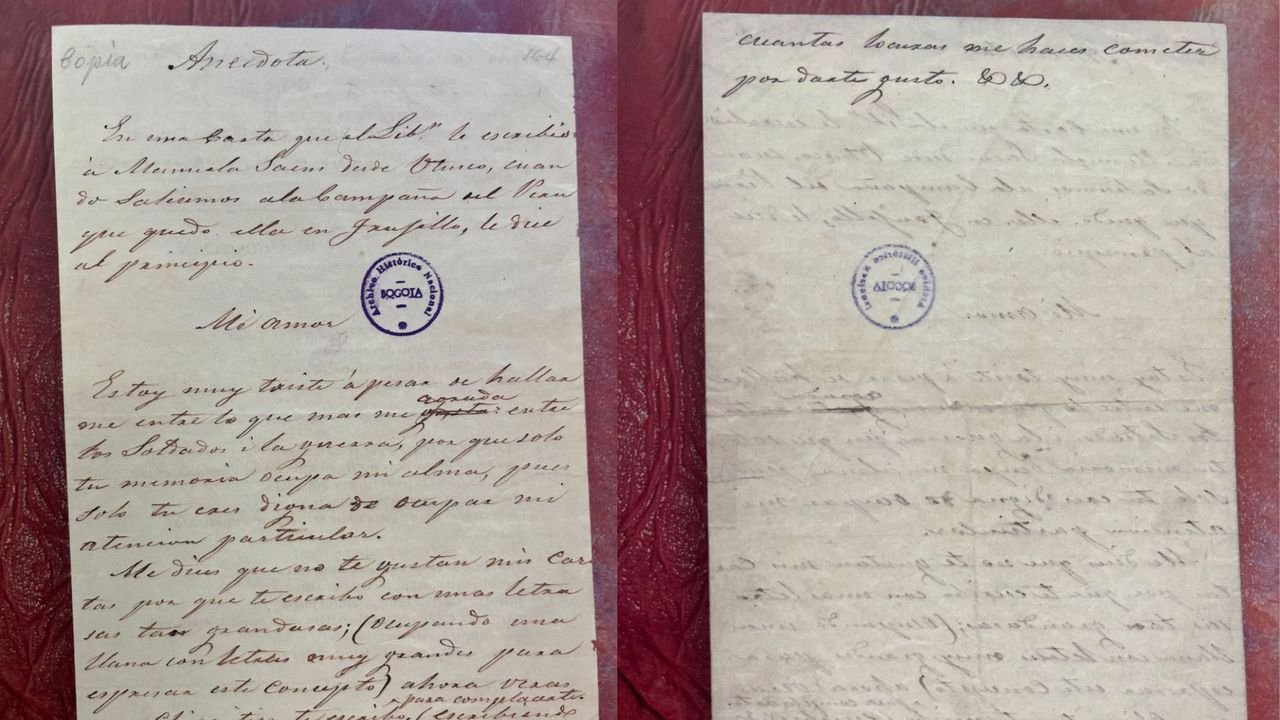 Copia Anecdota. 164
En una Carta que el Lib.r le escribio
à Manuela Saens desde Otusco, cuan
do Saliamos ala Campaña del Peru
que quedo ella en Trujillo, le dice
al principio.
Mi amor
Archivo Histórico Nacional
BOGOTA
Estoy muy triste à pesar de hallar
me entre lo que mas me agrada: entre
los Soldados i la guerra, por que solo
tu memoria ocupa mi alma, pues
solo tu eres digna de ocupar mi
atencion particular.
Me dices que no te gustan mis car
tas por que te escribo con unas letra
sas tan grandasas; (Ocupando una
llana con letras muy grandes para
espresar este Concepto) ahora veras
para complacerte.
Chiquitas te escribo (escribiendo
cuantas locuras me haces cometer
por darte gusto. &&.